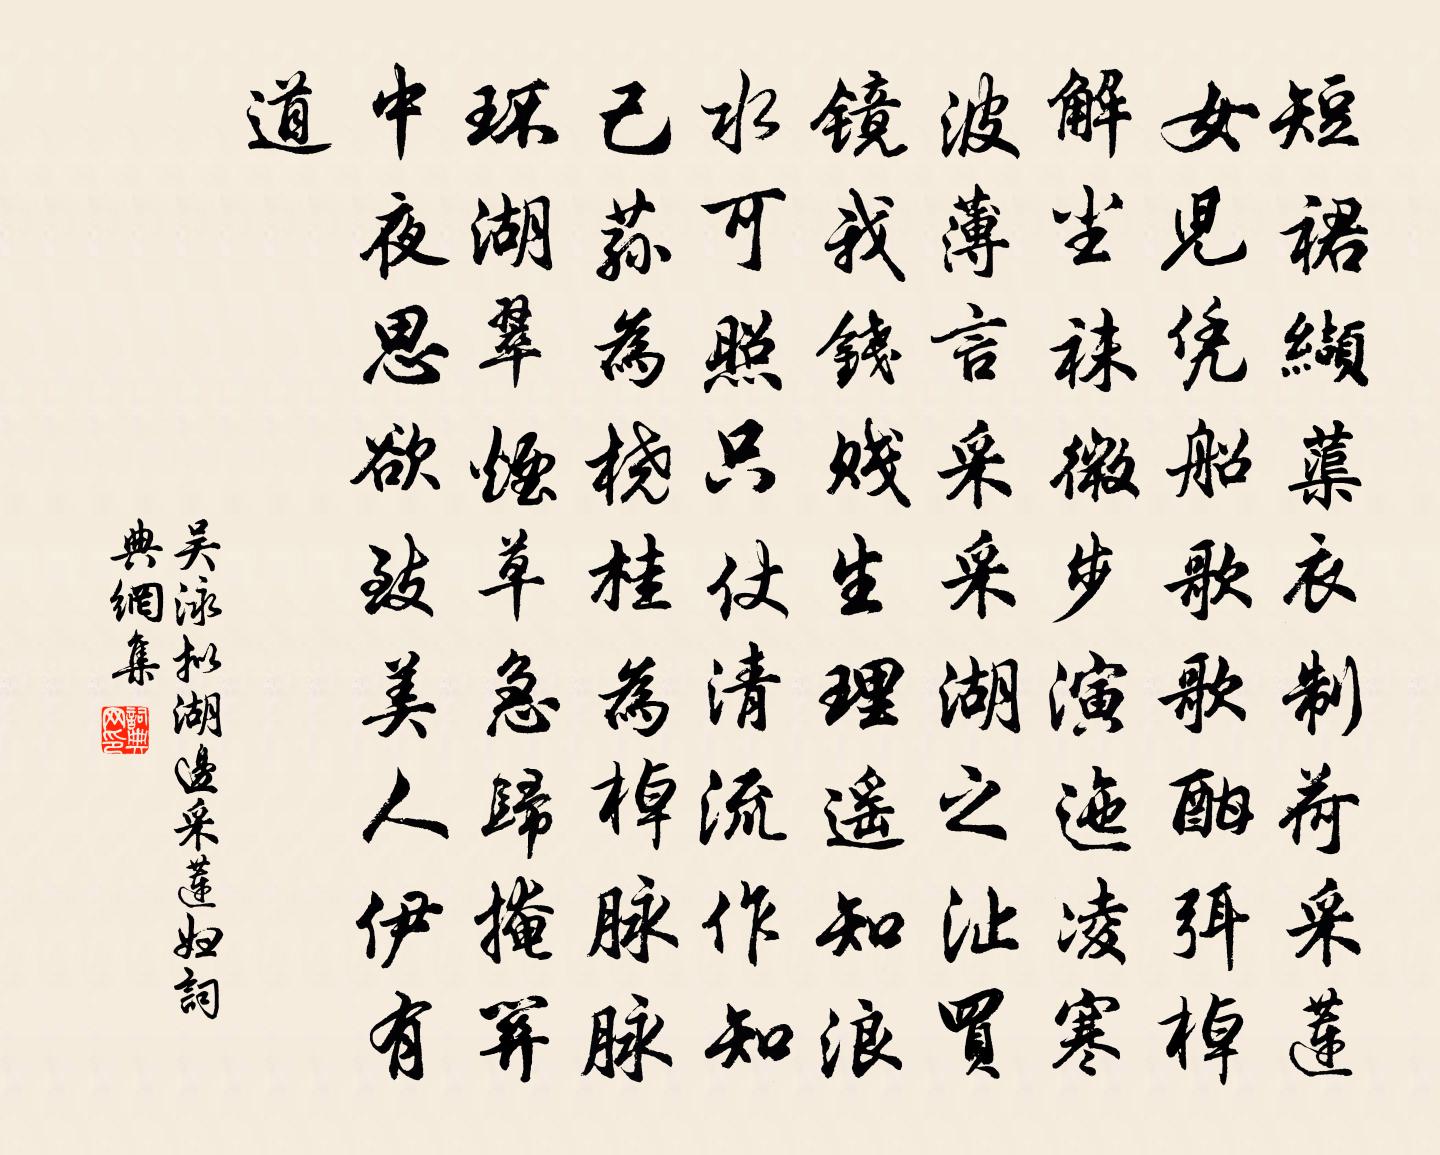 短裙纈蕖衣制荷采蓮
女児凭船歌歌酣弭棹
解坐袜微步演迤凌寒
波薄言采采湖之沚買
鏡我錢賎生理遥知浪
水可照只仗清流作知
己蓀為橈桂為棹脉脉
环湖翠煙草急歸掩
中夜思欲致美人伊有
道
吴泳拟湖邊采蓮妇詞
典網集
詞典网印